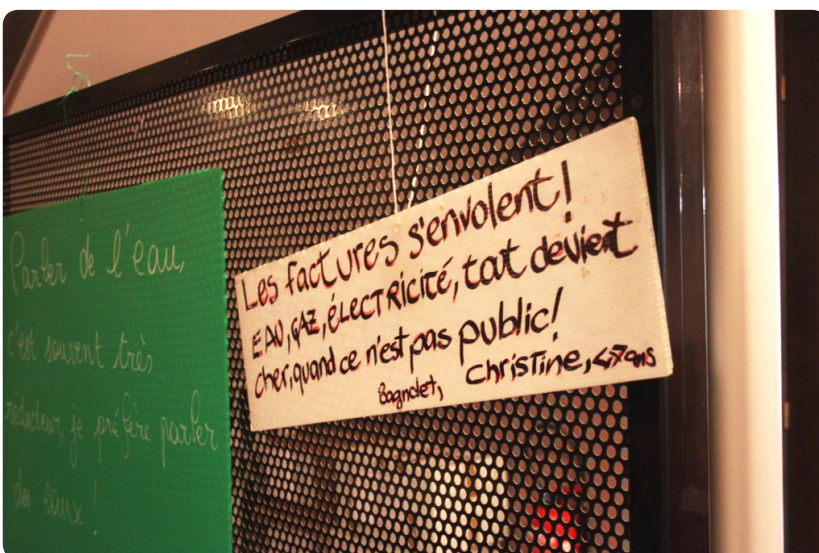 Parler de l'eau,
c'est souvent très
réducteur, je préfère parler
des eaux !
Les factures s'envolent !
EAU, GAZ, éLECTRICITÉ, tout devient
cher, quand ce n'est pas public !
Bagnolet, Christine, 47 ans